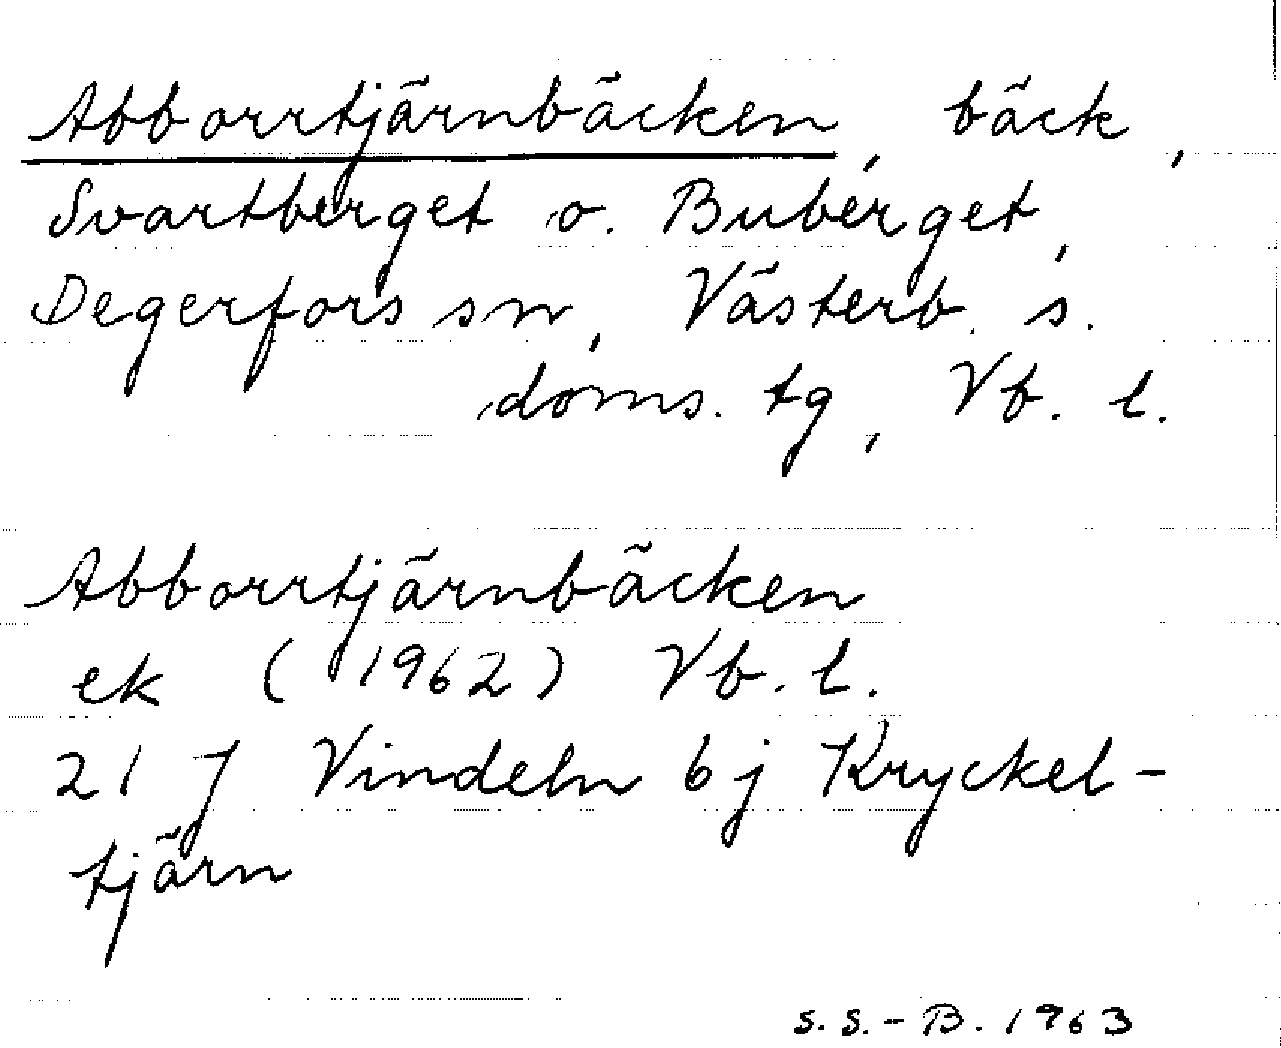 Abborrtjärnbäcken, bäck,
Svartberget o. Buberget,
Degerfors sn, Västerb. s.
doms. tg, Vb. l.
Abborrtjärnbäcken
ek (1962) Vb. l.
21 J Vindeln 6j Kryckel-
tjärn
S. S.-B. 1963